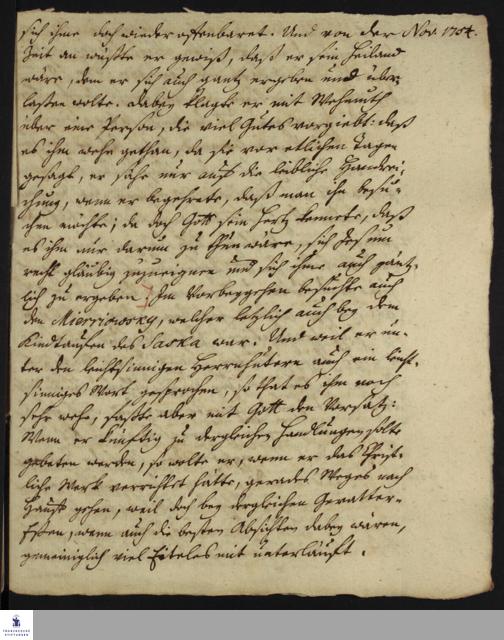 sich ihme doch wieder offenbaret. Und von der Nov. 1754.
Zeit an wüßte er gewiß, daß er sein Heiland
wäre, dem er sich auch gantz ergeben und über-
laßen wolte. Dabey klagte er mit Wehmuth
über eine Person, die viel Gutes vorgiebt: daß
es ihm wehe gethan, da sie vor etlichen Tagen
gesagt, er sähe nur auf die leibliche Handrei-
chung, wenn er begehrete, daß man ihn besu-
chen möchte; da doch Gott sein Hertz kennete, daß
es ihm nur darum zu thun wäre, sich Jesum
recht gläubig zuzueignen und sich ihme auch gäntz-
lich zu ergeben. Im Vorbeygehen besuchte auch
den Mierziowsky, welcher letzlich auch bey dem
Kindtaufen des Saska war. Und weil er un-
ter den leichtsinnigen Herrnhutern auch ein leicht-
sinniges Wort gesprochen, so that es ihm noch
sehr wehe, faßte aber mit Gott den Vorsatz:
Wenn er künftig zu dergleichen Handlungen solte
gebeten werden, so wolte er, wenn er das Christ-
liche Werk verrichtet hätte, gerades Weges nach
Hause gehen, weil doch bey dergleichen Gevatter-
Eßen, wenn auch die besten Absichten dabey wären,
gemeiniglich viel Eiteles mit unterläuft.
FRANCKESCHE
STIFTUNGEN